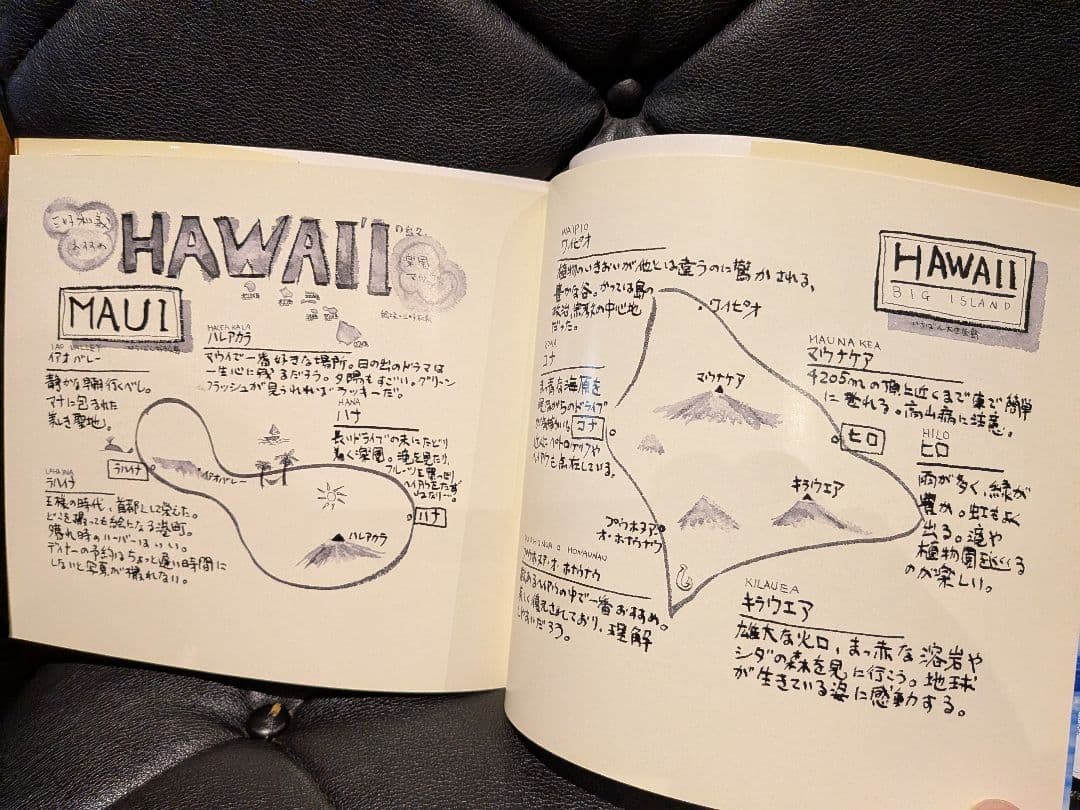 三好和義
おすすめ
HAWAI'I
の島々
楽園
マップ
MAUI
IAO VALLEY
イアオバレー
静かな朝行くべし。
マナに包まれた
美しき聖地。
HALEAKALA
ハレアカラ
マウイで一番好きな場所。日の出のドラマは
一生心に残るだろう。夕陽もすごい。グリーン
フラッシュが見られればラッキーだ。
HANA
ハナ
長いドライブの末にたどり
着く楽園。滝を見たり、
フルーツを
ラハイナ
イアオバレー
ハナ
ハレアカラ
LAHAINA
ラハイナ
王様の時代、首都として栄えた。
どこを撮っても絵になる港町。
晴れ時のハーバーはいい。
ディナーの予約はちょっと遅い時間に
しないと写真が撮れない。
WAIPIO
ワイピオ
植物のいきおいが他とは違うのに驚かされる、
豊かな谷。かつては島の
政治、宗教の中心地
だった。
HAWAII
BIG ISLAND
ワイピオ
コナ
海原を
見ながらのドライブ
コナ
点在している。
MAUNA KEA
マウナケア
4205mの頂上近くまで車で簡単
に登れる。高山病に注意。
マウナケア
ヒロ
HILO
ヒロ
雨が多く、緑が
豊か。虹もよく
出る。滝や
植物園を巡くる
のが楽しい。
キラウエア
プウホヌア・
オ・ホナウナウ
HONAUNAU
プウホヌア・オ・ホナウナウ
あるヘイアウの中で一番おすすめ。
美しく復元されており、理解
しやすいだろう。
KILAUEA
キラウエア
雄大な火口、まっ赤な溶岩や
シダの森を見に行こう。地球
が生きている姿に感動する。